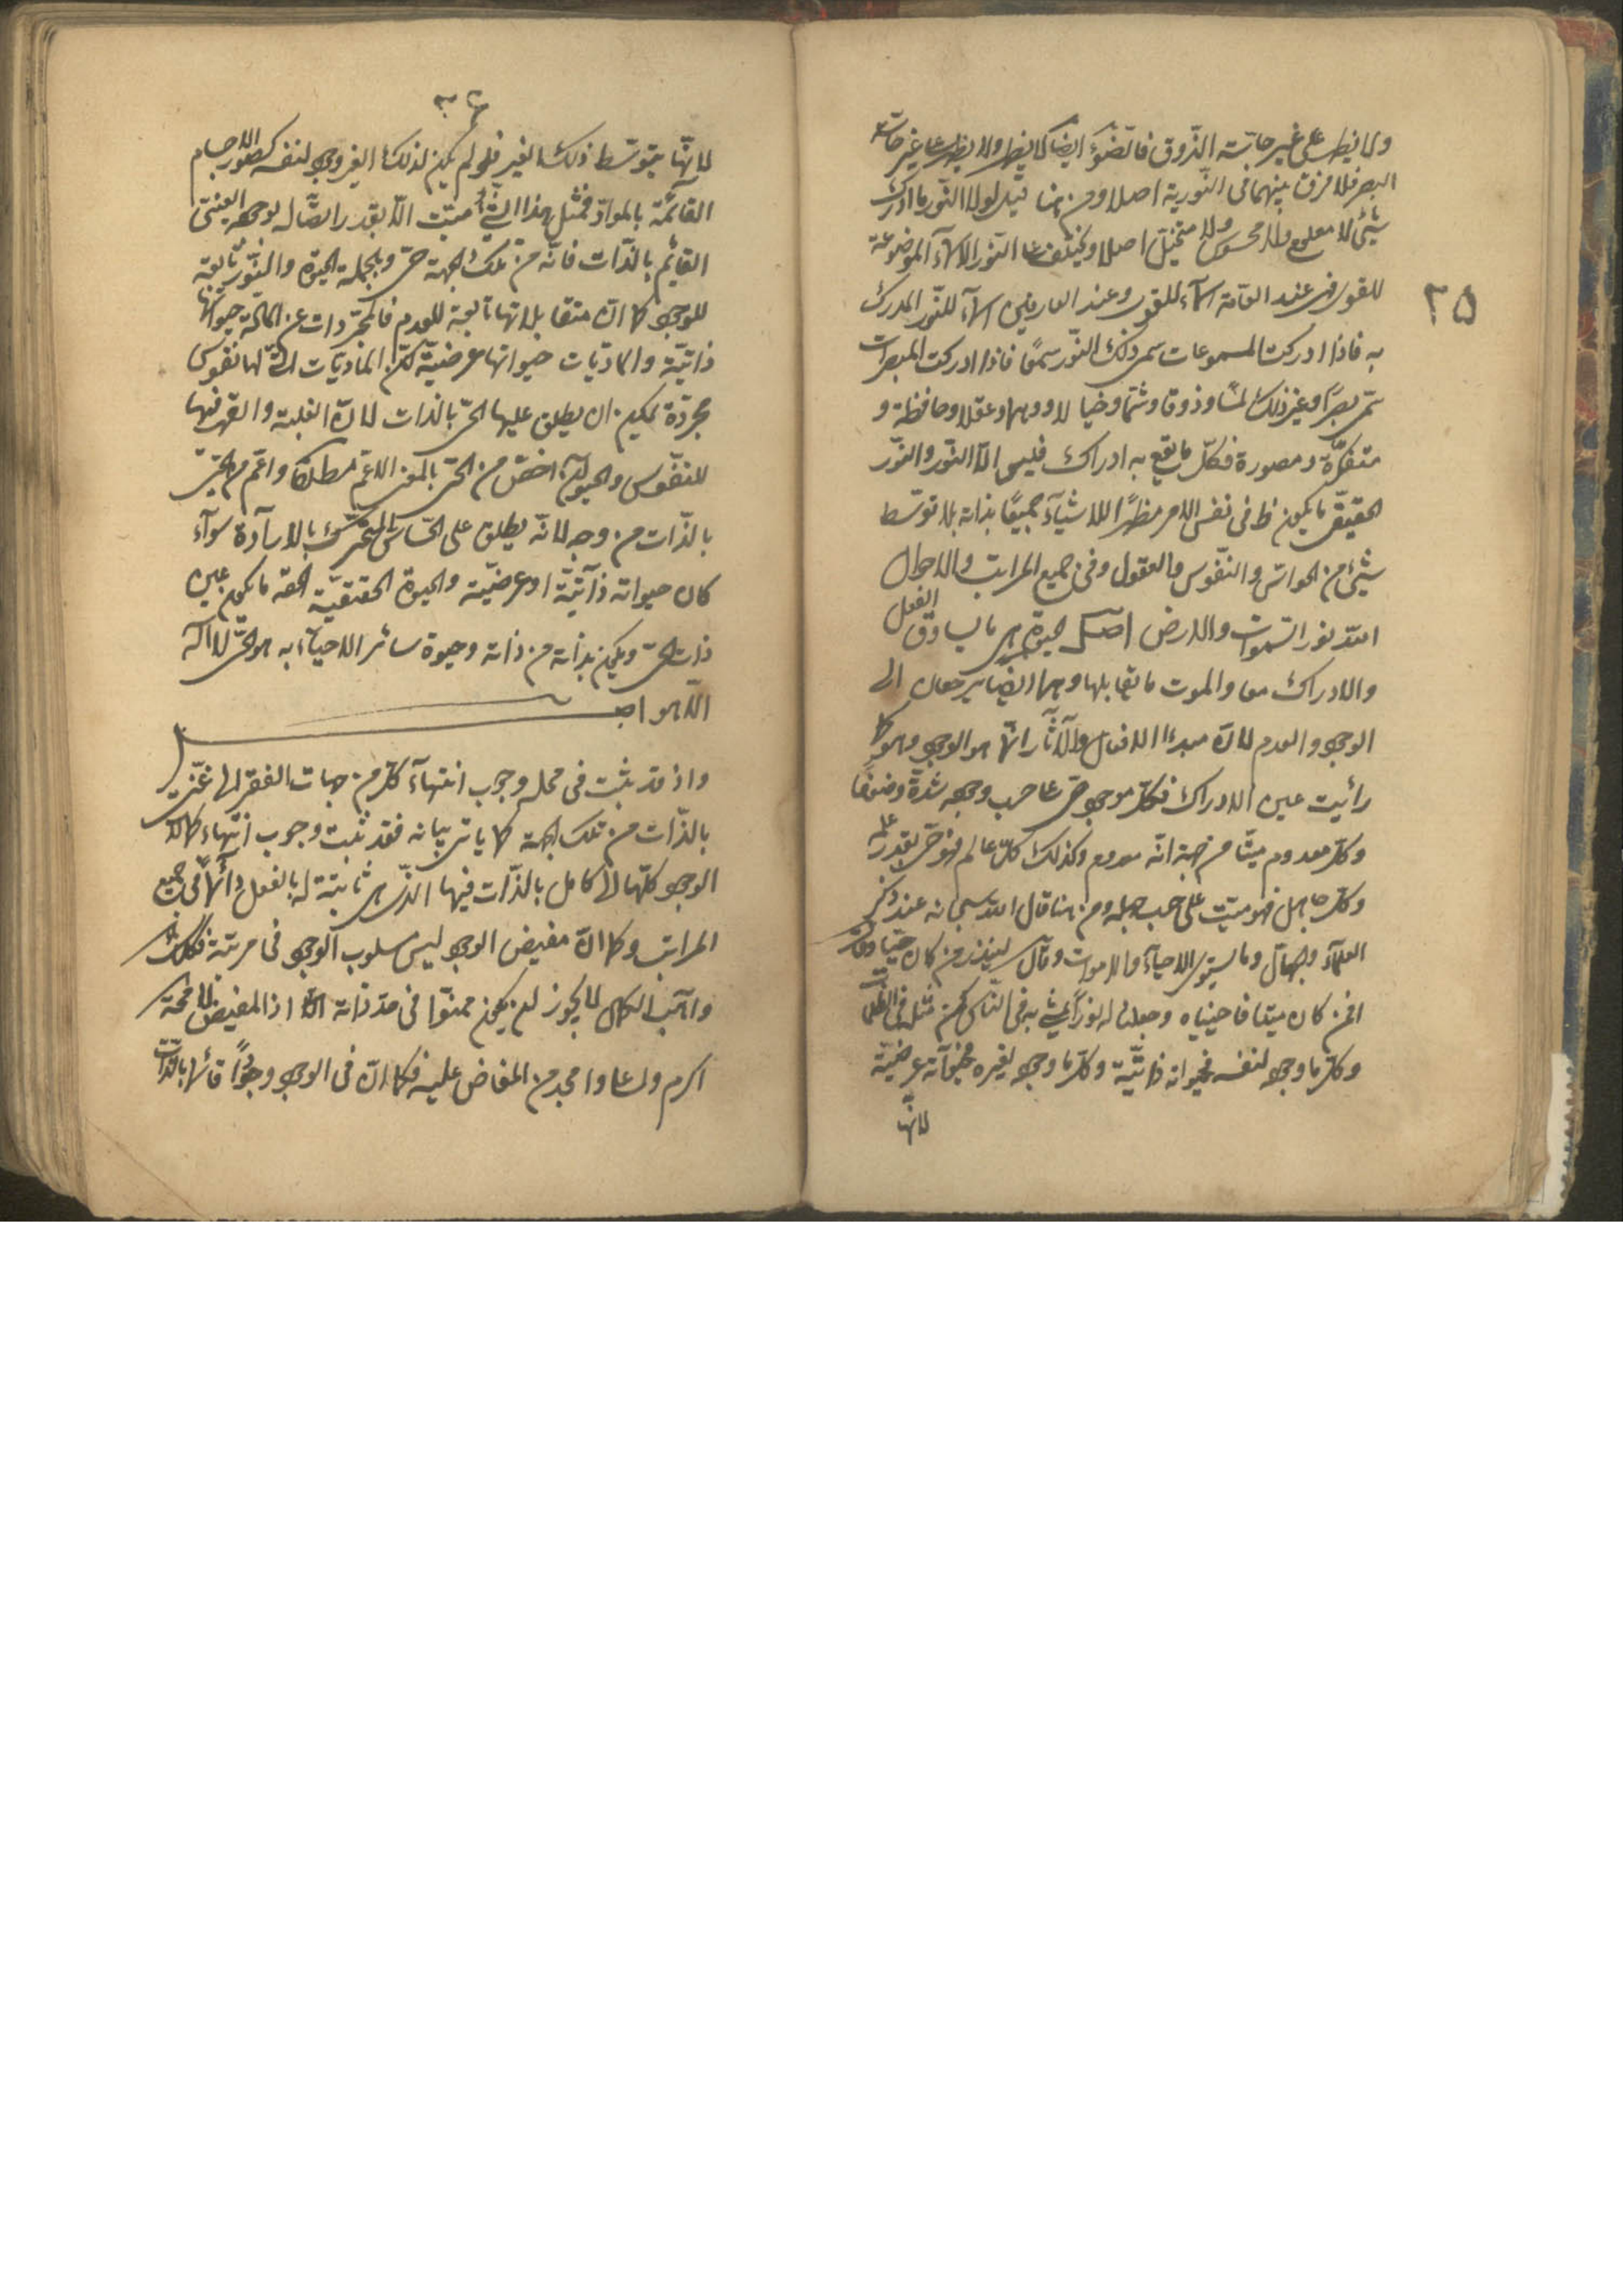 ٢٥
ولا يظهر على غير حاسّته الذّوق فالضّوء ايضا كما يظهر ولا يظهر على غير حاسّة
البصر فلا فرق بينهما فى النّورية اصلا ومن هنا قيل لولا النّور ما ادرك
شئ لا معلوم ولا محسوس ولا متخيّل اصلا ويختلف على النّور الاسمآء الموضوعة
للقوى فهى عند العامّة اسمآء للقوى وعند العارفين اسمآء للنّور المدرك
به فاذا ادركت المسموعات سمى ذلك النّور سمعًا فاذا ادركت المبصرات
سمّى بصرًا وغير ذلك لمسًا وذوقا وشمّا وخيالا ووهما وعقلا وحافظة و
متفكّرة ومصورة فكلّ ما يقع به ادراك فليس الّا النّور والنّور
الحقيقى ما يكون فى نفس الامر مظهرًا للاشيآء جميعًا بذاته بلا توسّط
شئ من الحواسّ والنّفوس والعقول وفى جميع المراتب والاحوال
اللّه نور السّموات والارض اصل الحيوة هى ما يساوق الفعل
والادراك معا والموت ما يقابلها وهما ايضا يرجعان الى
الوجود والعدم لانّ مبدء الافعال والآثار انّما هو الوجود وهو كما
رأيت عين الادراك فكلّ موجود حىّ على حسب وجوده شدّة وضعفًا
وكلّ معدوم ميّت من جهة انّه معدوم وكذلك كلّ عالم فهو حىّ بقدر علمه
وكلّ جاهل فهو ميّت على حسب جهله ومن هنا قال اللّه سبحانه عند ذكر
العلمآء والجهال وما يستوى الاحيآء والاموات وقال لينذر من كان حيّا وقال
افمن كان ميتا فاحييناه وجعلنا له نورًا يمشى به فى النّاس كمن مثله فى الظلمات
وكلّ ما وجوده لنفسه فحيواته ذاتيّة وكلّ ما وجوده لغيره فحيوآته عرضيّة
لانّها
٢٦
لانّها بتوسّط ذلك الغير فلو لم يكن لذلك الغير وجود لنفسه كصور الاجسام
القآئمة بالموادّ فمثل هذا الشئ ميّت الّا بقدر اتصّاله بوجوده العينى
القائم بالذّات فانّه من تلك الجهة حىّ وبالجملة الحيوة والنّور تابعة
للوجود كما انّ متقابلاتها تابعة للعدم فالمجرّدات عن المادّة حيواتها
ذاتيّة والماديّات حيواتها عرضيّة لكنّ الماديّات الّتى لها نفوس
مجردّة يمكن ان يطلق عليها الحىّ بالذات لانّ الغلبة والقهر فيها
للنفّوس والحيوان اخصّ من الحىّ بالمعنى الاعمّ مطلقًا واعمّ من الحىّ
بالذّات من وجه لانّه يطلق على الحسّاس المتحرّك بالارآدة سوآء
كان حيواته ذآتيّة او عرضيّة والحيوة الحقيقيّة الحقه ما يكون عين
ذات الحىّ ويكون بذاته من ذاته وحيوة سائر الاحيآء به هو الحىّ لا اله
الّا هو اصل
واذ قد ثبت فى محله وجوب انتهآء كلّ من جهات الفقر الى غنىّ
بالذّات من تلك الجهة كما يأتى بيانه فقد ثبت وجوب انتهاء كمالات
الوجود كلّها الى كامل بالذّات فيها الذّى هى ثابتة له بالفعل دآئمًا فى جميع
المراتب وكما انّ مفيض الوجود ليس مسلوب الوجود فى مرتبة فكذلك
واهب الكمال لا يجوز ان يكون ممنوّا فى حدّ ذاته اذ المفيض لا محة
اكرم واعلى وامجد من المفاض عليه فكما انّ فى الوجود وجودًا قائما بالذّات